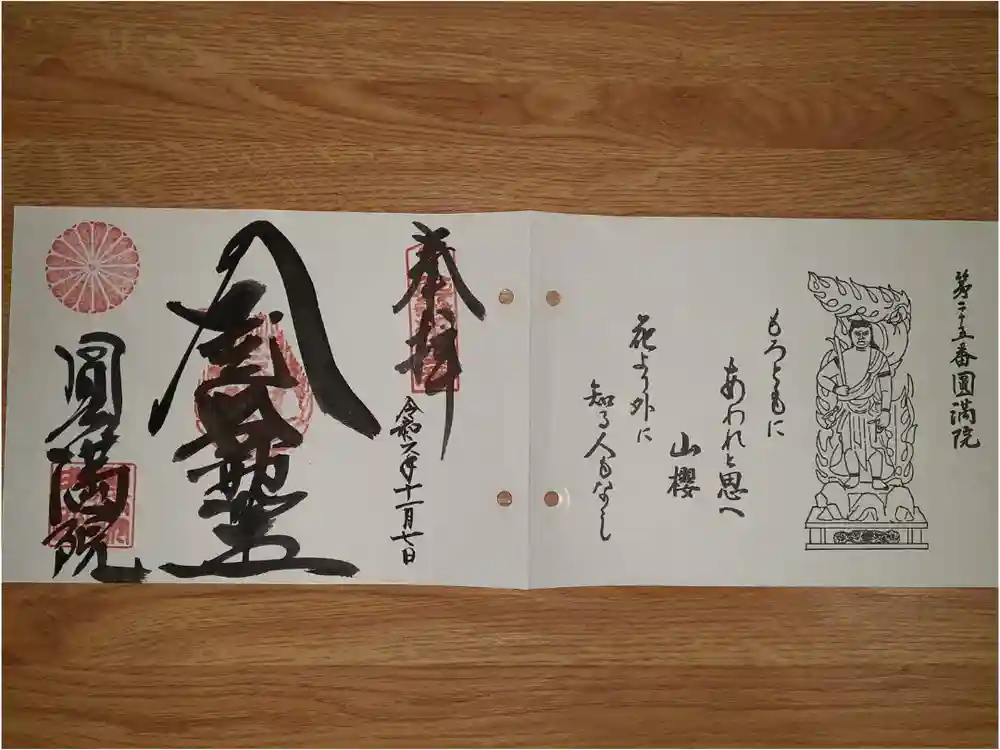 第二十五番圓満院
もろともに
あわれと思へ
山櫻
花より外に
知る人もなし
奉拝
令和六年十一月七日
圓満院